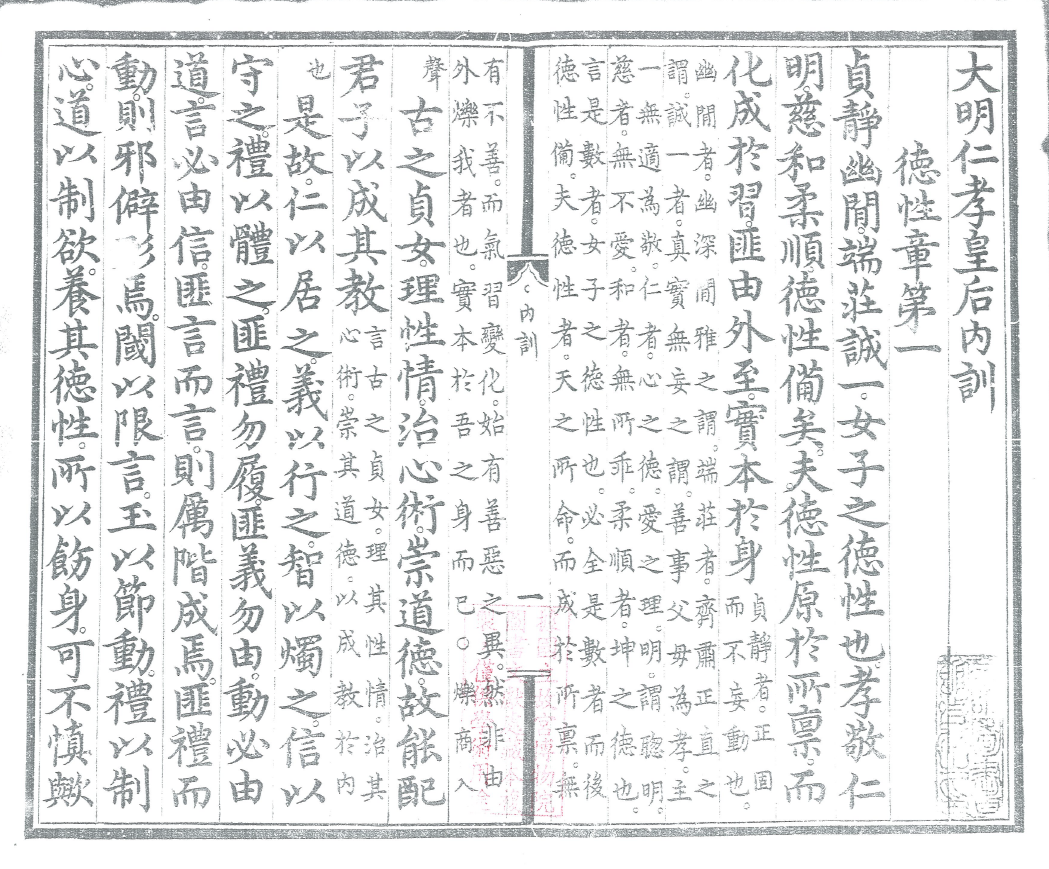 大明仁孝皇后内訓
德性章第一
貞靜幽閒。端莊誠一。女子之德性也。孝敬仁
明。慈和柔順。德性備矣。夫德性原於所禀。而
化成於習。匪由外至。實本於身
貞靜者。正固
而不妄動也。
幽閒者。幽深閒雅之謂。端莊者。齊肅正直之
謂。誠一者。真實無妄之謂。善事父母為孝。主
一無適為敬。仁者。心之德。愛之理。明。謂聰明。
慈者。無不愛。和者。無所乖。柔順者。坤之德也。
言是數者。女子之德性也。必全是數者而後
德性備。夫德性者。天之所命。而成於所禀。無
内訓
一
有不善。而氣習變化。始有善惡之異。然非由
外爍我者也。實本於吾之身而已。○爍商入
聲
古之貞女。理性情。治心術。崇道德。故能配
君子以成其教
言古之貞女。理其性情。治其
心術。崇其道德。以成教於内
也
是故。仁以居之。義以行之。智以燭之。信以
守之。禮以體之。匪禮勿履。匪義勿由。動必由
道。言必由信。匪言而言。則厲階成焉。匪禮而
動。則邪僻形焉。閾以限言。玉以節動。禮以制
心。道以制欲。養其德性。所以飭身。可不慎歟